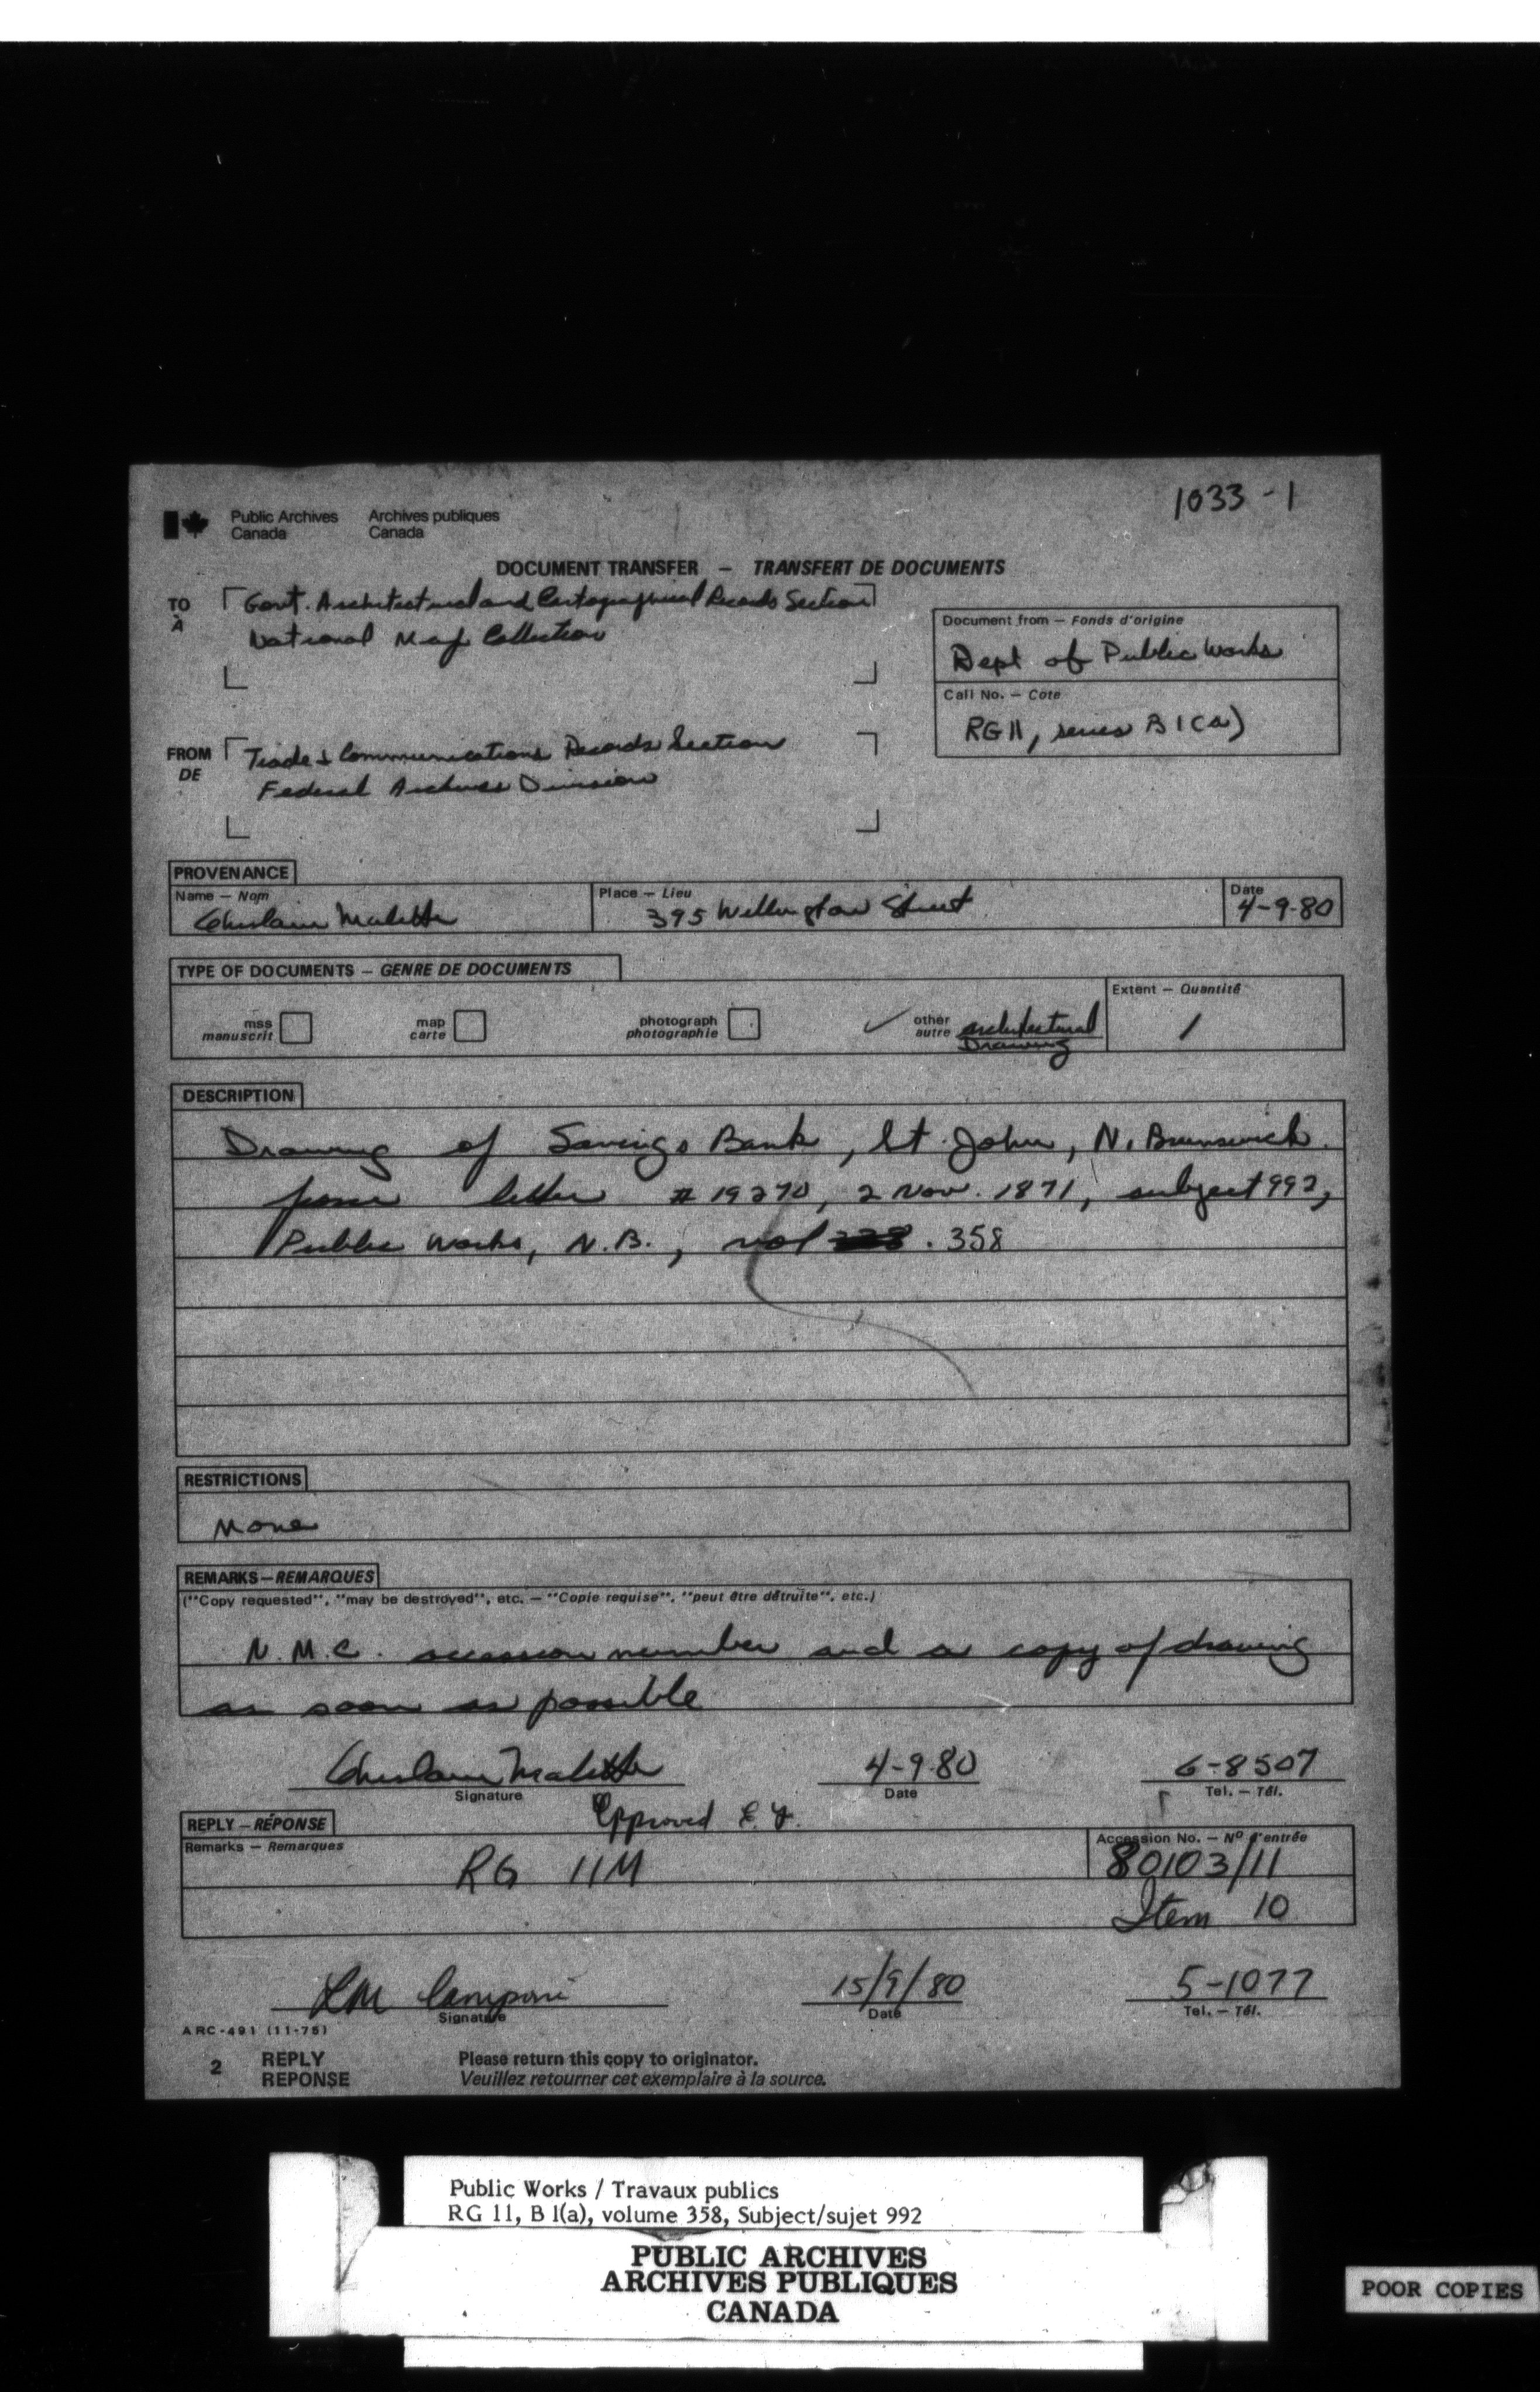 1033-1
Public Archives Canada
Archives publiques Canada
DOCUMENT TRANSFER – TRANSFERT DE DOCUMENTS
TO
À
Govt. Architectural and Cartographical Records Section
National Map Collection
Document from – Fonds d'origine
Dept of Public Works
Call No. – Cote
RG11, series B1(a)
FROM
DE
Trade & Communications Records Section
Federal Archives Division
PROVENANCE
Name – Nom
Ghislain Malette
Place – Lieu
395 Wellington Street
Date
4-9-80
TYPE OF DOCUMENTS – GENRE DE DOCUMENTS
mss
manuscrit
map
carte
photograph
photographie
other
autre
architectural
Drawing
Extent – Quantité
1
DESCRIPTION
Drawing of Savings Bank, St. John, N. Brunswick
from letter # 19270, 2 Nov. 1871, subject 992,
Public Works, N.B., vol . 358
RESTRICTIONS
None
REMARKS – REMARQUES
("Copy requested", "may be destroyed", etc. – "Copie requise", "peut être détruite", etc.)
N.M.C. accession number and a copy of drawing
as soon as possible
Ghislain Malette
Signature
4-9-80
Date
6-8507
Tel. – Tél.
REPLY – RÉPONSE
Approved
Remarks – Remarques
RG 11M
Accession No. – Nº d'entrée
80103/11
Item 10
LM
Signature
15/9/80
Date
5-1077
Tel. – Tél.
ARC-491 (11-75)
2
REPLY
REPONSE
Please return this copy to originator.
Veuillez retourner cet exemplaire à la source.
Public Works / Travaux publics
RG 11, B 1(a), volume 358, Subject/sujet 992
PUBLIC ARCHIVES
ARCHIVES PUBLIQUES
CANADA
POOR COPIES